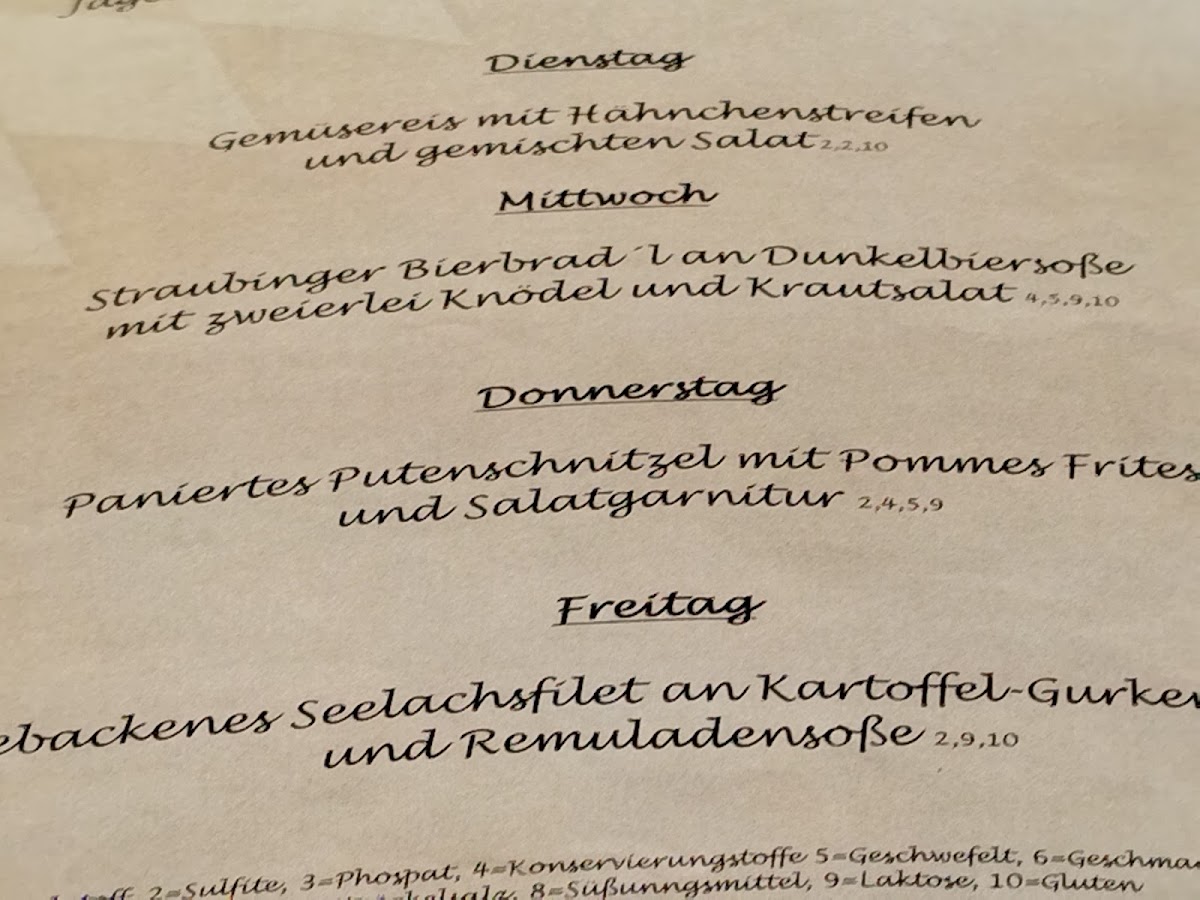 Dienstag
Gemüsereis mit Hähnchenstreifen
und gemischten Salat 2,2,10
Mittwoch
Straubinger Bierbrad ´l an Dunkelbiersoße
mit zweierlei Knödel und Krautsalat 4,5,9,10
Donnerstag
Paniertes Putenschnitzel mit Pommes Frites
und Salatgarnitur 2,4,5,9
Freitag
ebackenes Seelachsfilet an Kartoffel-Gurken
und Remuladensoße 2,9,10
2=Sulfite, 3=Phospat, 4=Konservierungstoffe 5=Geschwefelt, 6=Geschma
8=Süßunngsmittel, 9=Laktose, 10=Gluten